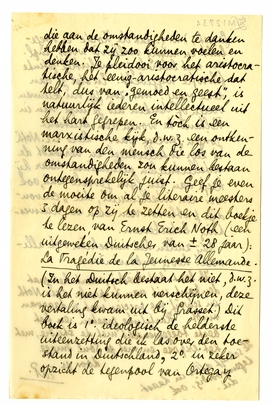 die aan de omstandigheden te danken
hebben dat zij zoo kunnen voelen en
denken. Je pleidooi voor het aristocra-
tische, het eenig-aristocratische dat
telt, dus van "gemoed en geest", is
natuurlijk iederen intellectueel uit
het hart gegrepen. En toch is een
marxistische kijk, d.w.z. een ontken-
ning van den mensch die los van de
omstandigheden zou kunnen bestaan
ontegensprekelijk juist. Geef je even
de moeite om al je literaire meesters
2 dagen op zij te zetten en dit boekje
te lezen van Ernst Erich Noth (een
uitgeweken Duitscher van ± 28 jaar):
La Tragédie de la Jeunesse Allemande.
(In het Duitsch bestaat het niet, d.w.z.
is het niet kunnen verschijnen, deze
vertaling kwam uit bij Grasset) Dit
boek is 1° ideologisch de helderste
uiteenzetting die ik las over den toe-
stand in Duitschland, 2° in zeker
opzicht de tegenpool van Ortega y